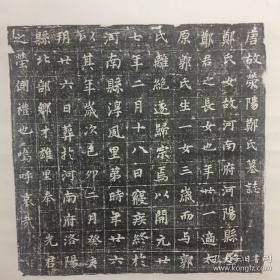 唐故滎陽鄭氏墓誌
鄭氏女故河南府河陽縣
鄭君之長女也年廿一適太
原郭氏生一女三歲而与郭
氏離絶遂歸宗焉以開元廿
七年二月十八日寢疾終於
河南縣淳風里第時年廿六
以其年歲次己卯二月癸亥
朔廿六日葬於河南府洛陽
縣北部鄉才雄里奉 先君
之塋側禮也嗚呼哀哉